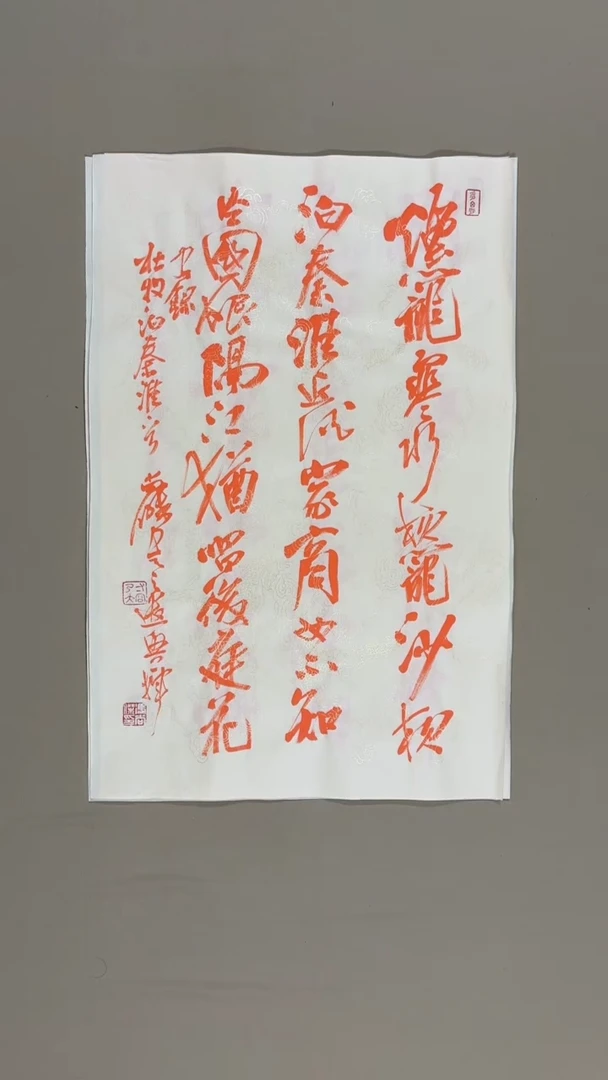 煙籠寒水月籠沙夜
泊秦淮近酒家商女不知
亡國恨隔江猶唱後庭花
錄
杜牧泊秦淮